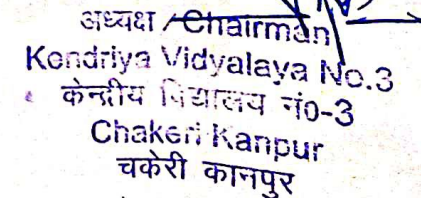 अध्यक्ष / Chairman
Kendriya Vidyalaya No.3
केन्द्रीय विद्यालय नं०-3
Chakeri Kanpur
चकेरी कानपुर